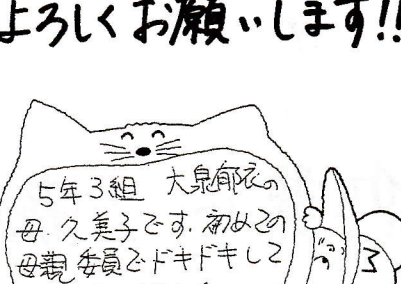 よろしくお願いします!!
5年3組 大泉郁衣の
母 久美子です。初めての
母親委員でドキドキして